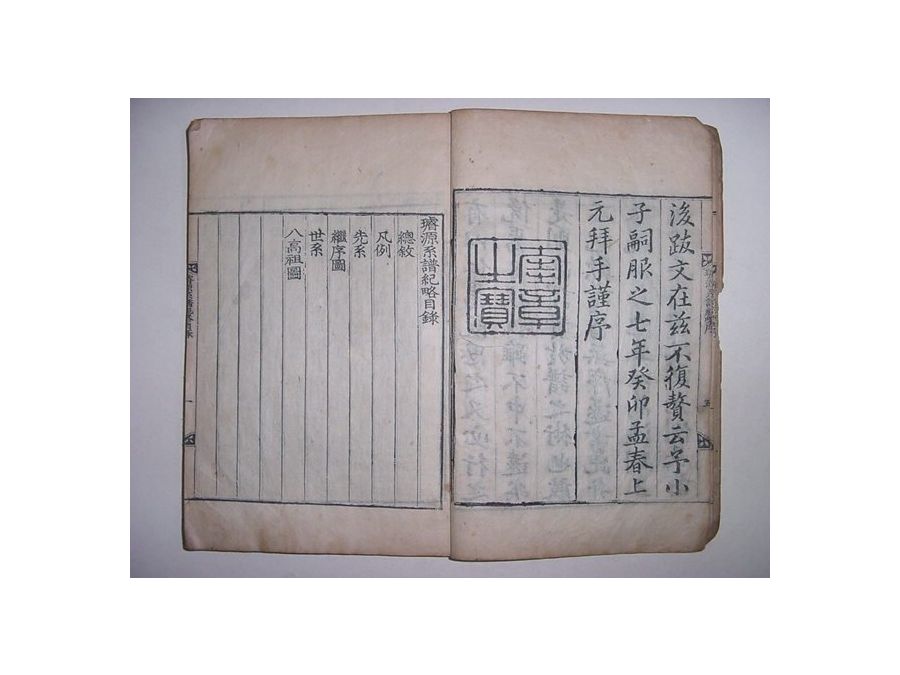 後跋文在玆不復贅云予小
子嗣服之七年癸卯孟春上
元拜手謹序
奎章
之寶
璿源系譜紀略目錄
總敘
凡例
先系
繼序圖
世系
八高祖圖
五
一